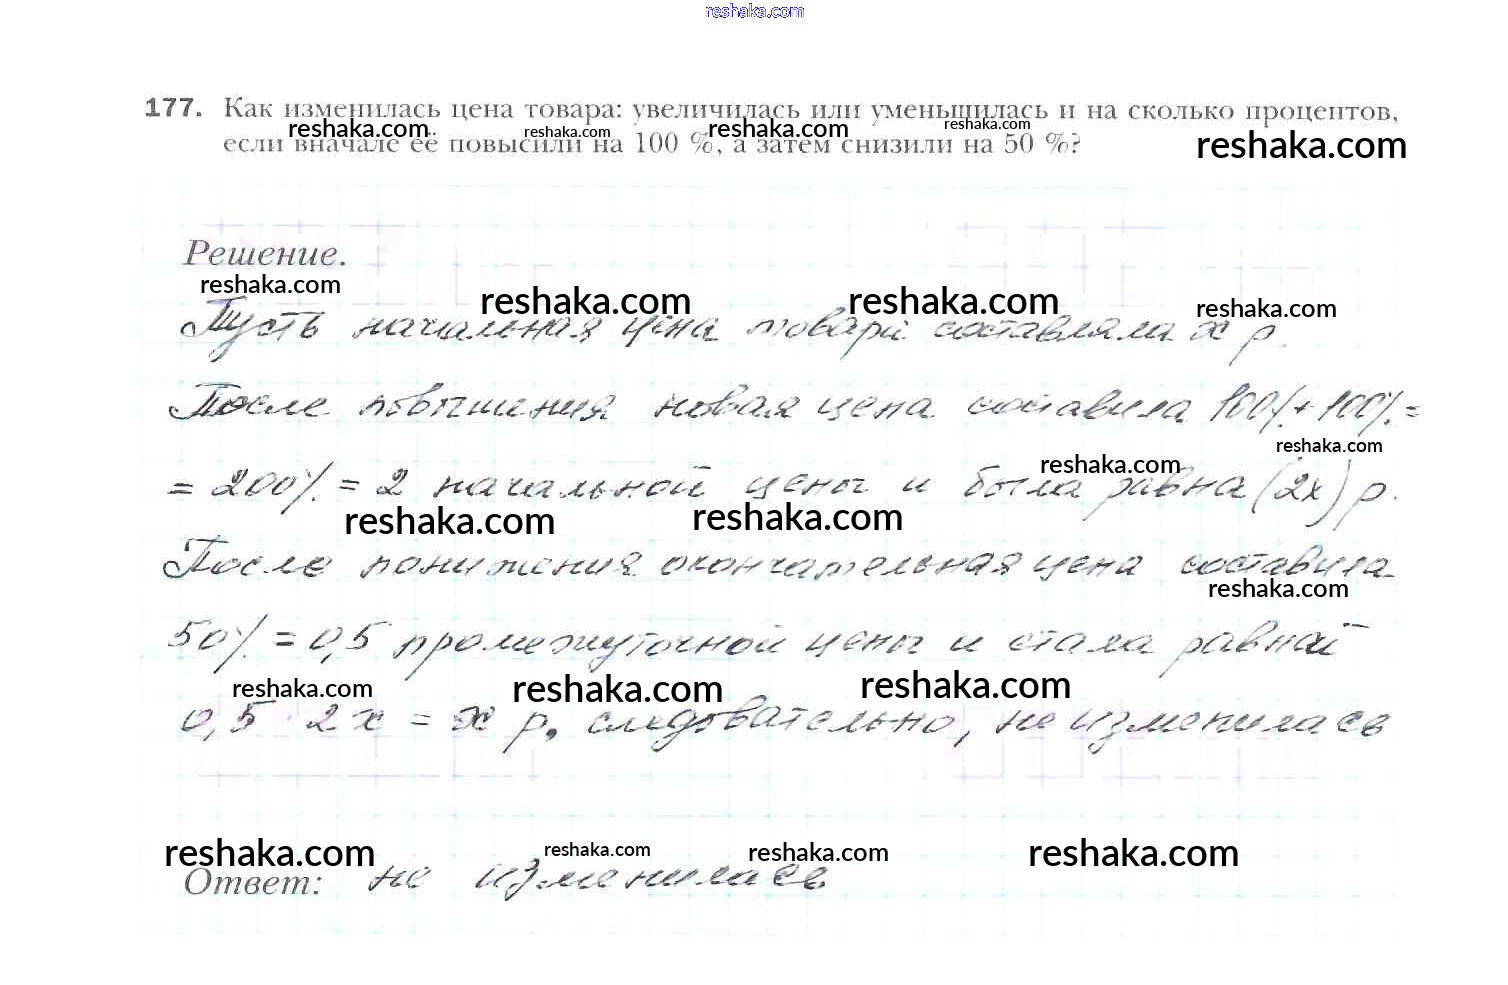 reshaka.com
177. Как изменилась цена товара: увеличилась или уменьшилась и на сколько процентов,
reshaka.com reshaka.com reshaka.com reshaka.com reshaka.com
если вначале её повысили на 100 %, а затем снизили на 50 %?
Решение.
reshaka.com reshaka.com reshaka.com reshaka.com
Пусть начальная цена товара составляла x р.
После повышения новая цена составила 100%+100%=
reshaka.com reshaka.com
= 200% = 2 начальной цены и была равна (2x) р.
reshaka.com reshaka.com
После понижения окончательная цена составила
reshaka.com
50% = 0,5 промежуточной цены и стала равной
reshaka.com reshaka.com reshaka.com
0,5 · 2x = x р, следовательно, не изменилась
reshaka.com reshaka.com reshaka.com reshaka.com
Ответ: не изменилась